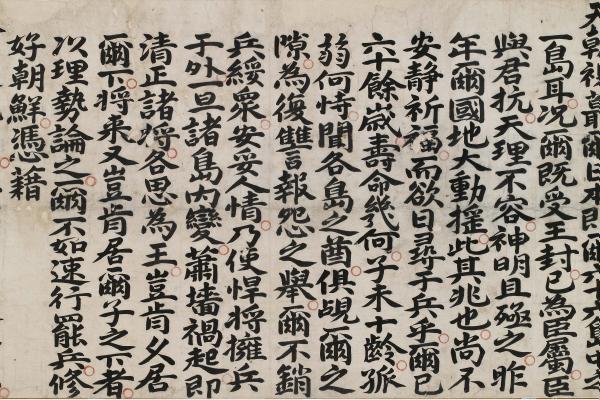 天朝視蕞爾日本即爾六十六島中之
一島耳况爾既受王封已為臣屬臣
與君抗天理不容神明且殛之昨
年爾國地大動摧此其兆也尚不
安静祈福而欲日尋于兵乎爾已
六十餘歲壽命幾何子未十齡孤
弱何恃聞各島之酋俱覘爾之
隙為復讐報怨之舉爾不銷
兵綏衆安妥人情乃使悍將擁兵
于外一旦諸島內變蕭墻禍起即
清正諸將各思為王豈肯久居
爾下將来又豈肯居爾子之下者
以理勢論之爾不如速行罷兵修
好朝鮮憑藉